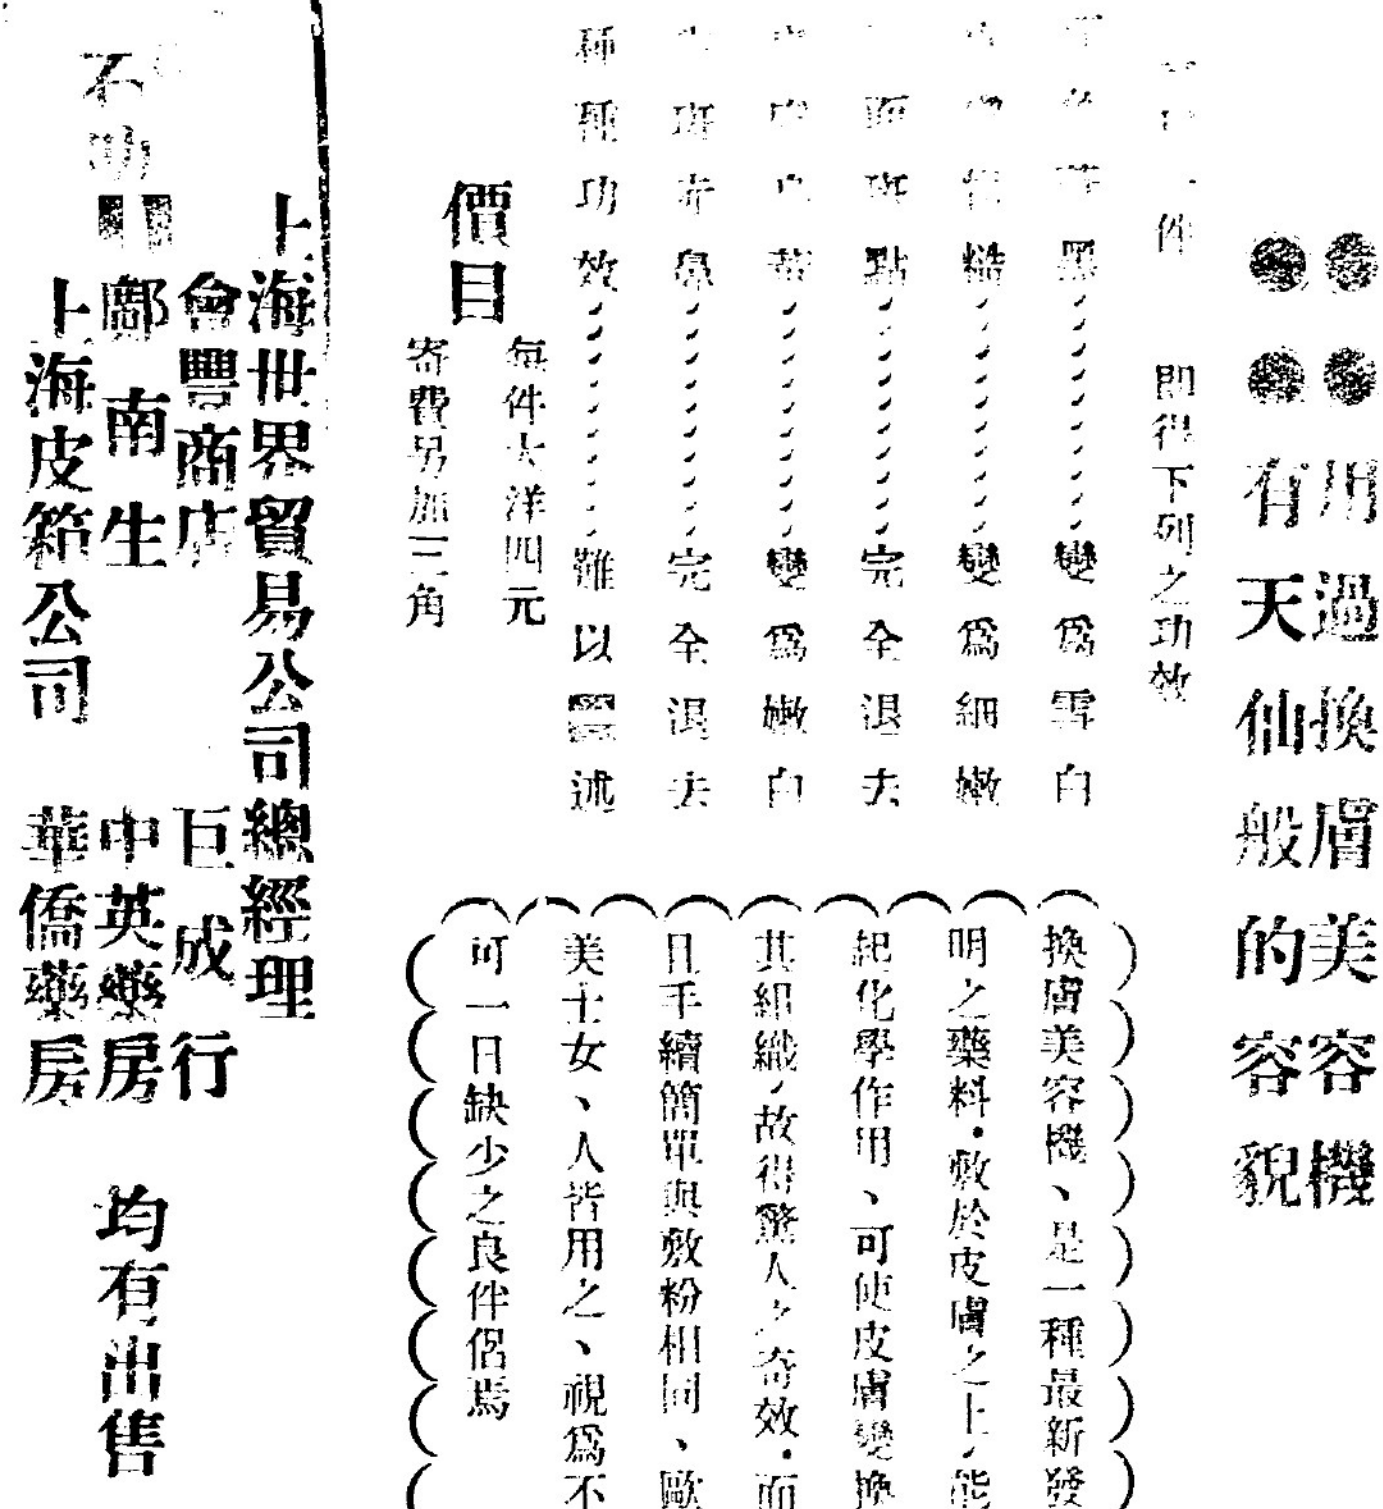 用過換膚美容機
有天仙般的容貌
件 即得下列之功效
黑變爲雪白
糙變爲細嫩
面斑點完全退去
變爲嫩白
斑赤鼻完全退去
種種功效難以述
價目
每件大洋四元
寄費另加三角
換膚美容機、是一種最新發
明之藥料．敷於皮膚之上，能
起化學作用、可使皮膚變換
其組織，故得驚人之奇效．而
且手續簡單與敷粉相同、歐
美士女、人皆用之、視爲不
可一日缺少之良伴侶焉
上海世界貿易公司總經理
會豐商店 巨成行
鄺南生 中英藥房 均有出售
上海皮箱公司 華僑藥房